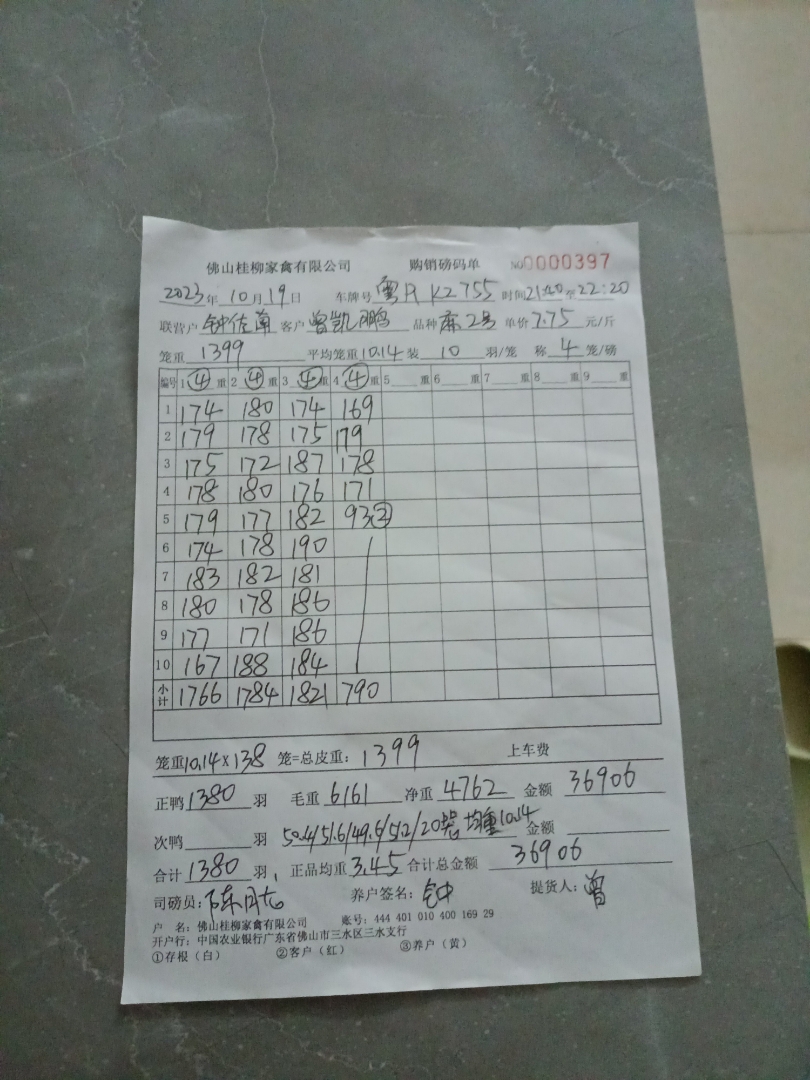 佛山桂柳家禽有限公司 购销磅码单 NO 0000397
2023年10月19日 车牌号 粤R K2755 时间21:40至22:20
联营户 钟佐 客户 曾凯鹏 品种 麻2号 单价7.75元/斤
笼重 1399 平均笼重10.14装 10 羽/笼 称 4 笼/磅
编号 1 ④ 重 2 ④ 重 3 ④ 重 4 ④ 重 5 重 6 重 7 重 8 重 9 重
1 174 180 174 169
2 179 178 175 179
3 175 172 187 178
4 178 180 176 171
5 179 177 182 93②
6 174 178 190
7 183 182 181
8 180 178 186
9 177 171 186
10 167 188 184
小计 1766 1784 1821 790
笼重10.14×138 笼=总皮重：1399 上车费
正鸭1380羽 毛重 6161 净重 4762 金额 36906
次鸭 羽 50.4/51.6/49.6/51.2/20 均重10.14 金额
合计 1380 羽，正品均重3.45 合计总金额 36906
司磅员：陈 养户签名：钟 提货人：曾
户 名：佛山桂柳家禽有限公司 账号：444 401 010 400 169 29
开户行：中国农业银行广东省佛山市三水区三水支行
①存根（白） ②客户（红） ③养户（黄）